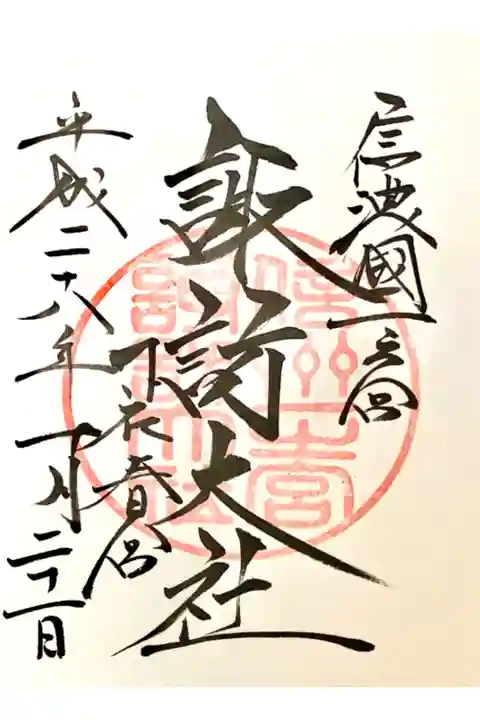 信濃國一之宮
諏訪大社
下社春宮
平成二十八年十月二十一日
信州一宮
諏訪大社